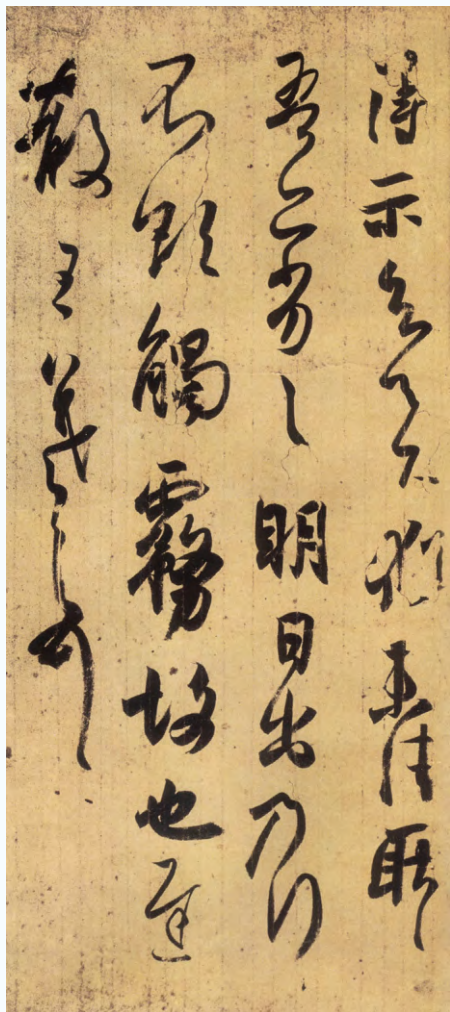 得示知足下猶未佳耿耿
吾亦劣劣明日出乃行
不欲觸霧故也遲
散王羲之頓首